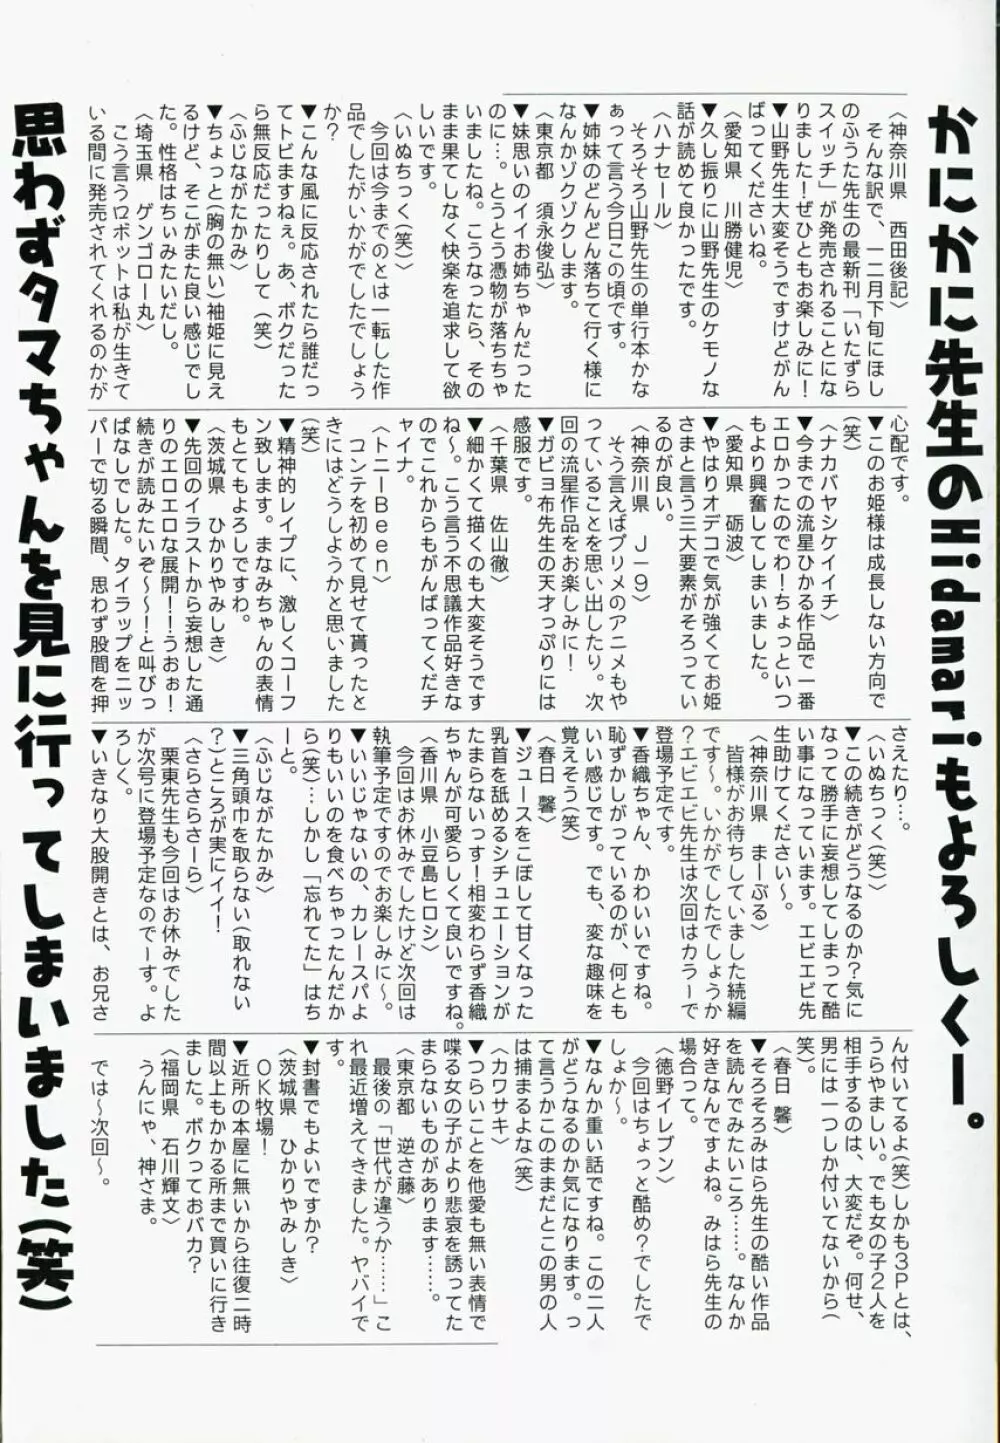 かにかに先生のHidamariもよろしくー。
〈神奈川県　西田後記〉
そんな訳で、一二月下旬にほし
のふうた先生の最新刊「いたずら
スイッチ」が発売されることにな
りました！ぜひともお楽しみに！
▼山野先生大変そうですけどがん
ばってくださいね。
〈愛知県　川勝健児〉
▼久し振りに山野先生のケモノな
話が読めて良かったです。
〈ハナセール〉
そろそろ山野先生の単行本かな
ぁって言う今日この頃です。
▼姉妹のどんどん落ちて行く様に
なんかゾクゾクします。
〈東京都　須永俊弘〉
▼妹思いのイイお姉ちゃんだった
のに…。とうとう憑物が落ちちゃ
いましたね。こうなったら、その
まま果てしなく快楽を追求して欲
しいです。
〈いぬちっく(笑)〉
今回は今までのとは一転した作
品でしたがいかがでしたでしょう
か？
▼こんな風に反応されたら誰だっ
てトビますねぇ。あ、ボクだった
ら無反応だったりして(笑)
〈ふじながたかみ〉
▼ちょっと(胸の無い)袖姫に見え
るけど、そこがまた良い感じでし
た。性格はちぃみたいだし。
〈埼玉県　ゲンゴロー丸〉
こう言うロボットは私が生きて
いる間に発売されてくれるのかが
心配です。
▼このお姫様は成長しない方向で
(笑)
〈ナカバヤシケイイチ〉
▼今までの流星ひかる作品で一番
エロかったのでわ！ちょっといつ
もより興奮してしまいました。
〈愛知県　砺波〉
▼やはりオデコで気が強くてお姫
さまと言う三大要素がそろってい
るのが良い。
〈神奈川県　J-9〉
そう言えばプリメのアニメもや
っていることを思い出したり。次
回の流星作品をお楽しみに！
▼ガビョ布先生の天才っぷりには
感服です。
〈千葉県　佐山徹〉
▼細かくて描くのも大変そうです
ね～。こう言う不思議作品好きな
のでこれからもがんばってくだチ
ャイナ。
〈トニーBeen〉
コンテを初めて見せて貰ったと
きにはどうしようかと思いました
(笑)
▼精神的レイプに、激しくコーフ
ン致します。まなみちゃんの表情
もとてもよろしですわ。
〈茨城県　ひかりやみしき〉
▼先回のイラストから妄想した通
りのエロエロな展開！！うおぉ！
続きが読みたいぞ～～！と叫びっ
ぱなしでした。タイラップをニッ
パーで切る瞬間、思わず股間を押
さえたり…。
〈いぬちっく(笑)〉
▼この続きがどうなるのか？気に
なって勝手に妄想してしまって酷
い事になっています。エビエビ先
生助けてください～。
〈神奈川県　まーぶる〉
皆様がお待ちしていました続編
です～。いかがでしたでしょうか
？エビエビ先生は次回はカラーで
登場予定です。
▼香織ちゃん、かわいいですね。
恥ずかしがっているのが、何とも
いい感じです。でも、変な趣味を
覚えそう(笑)
〈春日　馨〉
▼ジュースをこぼして甘くなった
乳首を舐めるシチュエーションが
たまらないっす！相変わらず香織
ちゃんが可愛らしくて良いですね。
〈香川県　小豆島ヒロシ〉
今回はお休みでしたけど次回は
執筆予定ですのでお楽しみに～。
▼いいじゃないの、カレースパよ
りもいいものを食べちゃったんだか
ら(笑)…しかし「忘れてた」はち
ーと。
〈ふじながたかみ〉
▼三角頭巾を取らない(取れない
？)ところが実にイイ！
〈さらさらさーら〉
栗東先生も今回はお休みでした
が次号に登場予定なのでーす。よ
ろしく。
▼いきなり大股開きとは、お兄さ
ん付いてるよ(笑)しかも3Pとは、
うらやましい。でも女の子2人を
相手するのは、大変だぞ。何せ、
男には一つしか付いてないから(
笑)。
〈春日　馨〉
▼そろそろみはら先生の酷い作品
を読んでみたいころ……。なんか
好きなんですよね。みはら先生の
場合って。
〈徳野イレブン〉
今回はちょっと酷め？でしたで
しょか～。
▼なんか重い話ですね。この二人
がどうなるのか気になります。っ
て言うかこのままだとこの男の人
は捕まるよな(笑)
〈カワサキ〉
▼つらいことを他愛も無い表情で
喋る女の子がより悲哀を誘ってた
まらないものがあります……。
〈東京都　逆さ藤〉
最後の「世代が違うか……」こ
れ最近増えてきました。ヤバイで
す。
▼封書でもよいですか？
〈茨城県　ひかりやみしき〉
OK牧場！
▼近所の本屋に無いから往復二時
間以上もかかる所まで買いに行き
ました。ボクっておバカ？
〈福岡県　石川輝文〉
うんにゃ、神さま。
では～次回～。
思わずタマちゃんを見に行ってしまいました(笑)